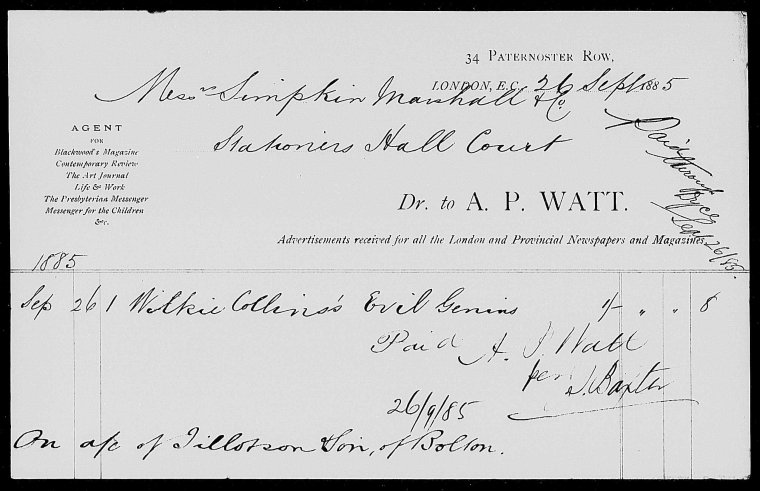 34 PATERNOSTER ROW,
LONDON, E.C., 26 Sept 1885
Messrs Simpkin Marshall & Co
Stationers Hall Court
AGENT
FOR
Blackwood's Magazine
Contemporary Review
The Art Journal
Life & Work
The Presbyterian Messenger
Messenger for the Children
&c.
Dr. to A. P. WATT.
Paid
Sept 26/85.
Advertisements received for all the London and Provincial Newspapers and Magazines.
1885
Sep 26 1 Wilkie Collins's Evil Genius 1/- " " 8
Paid A. P. Watt
per J. Baxter
26/9/85
On a/c of Tillotson & Son, of Bolton.